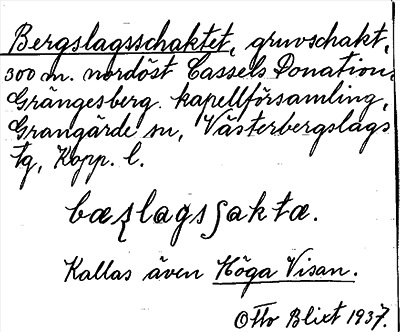 Bergslagsschaktet, gruvschakt,
300 m. nordöst Cassels Donation,
Grängesberg. kapellförsamling,
Grangärde sn, Västerbergslags
tg, Kopp. l.
bæʃlagsʃaktæ.
Kallas även Höga Visan.
Otto Blixt 1937.